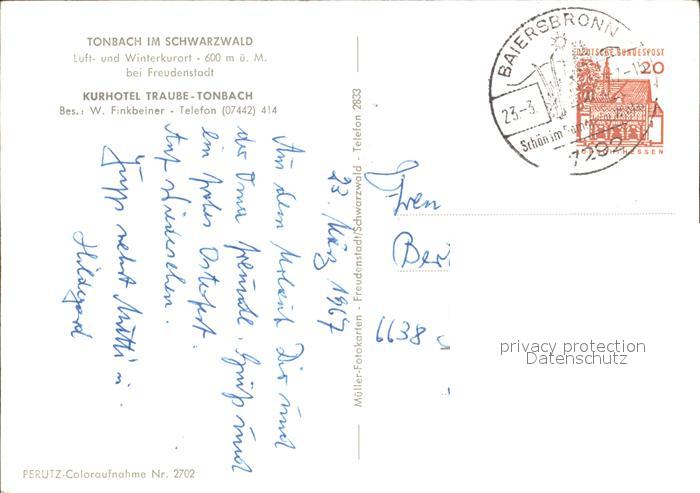 TONBACH IM SCHWARZWALD
Luft- und Winterkurort - 600 m ü. M.
bei Freudenstadt
KURHOTEL TRAUBE-TONBACH
Bes.: W. Finkbeiner - Telefon (07442) 414
23. März 1967
Aus dem Urlaub Dir und
der Oma Freunde. Gruß und
ein frohes Osterfest.
Auf Wiedersehen.
Mutti u.
Hildegard
PERUTZ-Coloraufnahme Nr. 2702
Müller-Fotokarten - Freudenstadt/Schwarzwald - Telefon 2833
BAIERSBRONN
23.-3.
Schön im
7292
DEUTSCHE BUNDESPOST
20
HESSEN
6638
privacy protection
Datenschutz